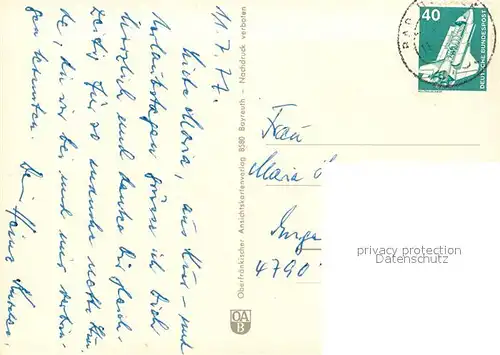 11.7.77.
Liebe Maria, aus Kur- und
Urlaubstagen grüße ich Dich
herzlich und danke Dir gleich-
zeitig für so manche nette Stun-
de, die wir bei und mir verbrin-
gen konnten. Dein Heinz
Oberfränkischer Ansichtskartenverlag 8580 Bayreuth – Nachdruck verboten
OA
B
40
DEUTSCHE BUNDESPOST
Frau
Maria
4790
privacy protection
Datenschutz